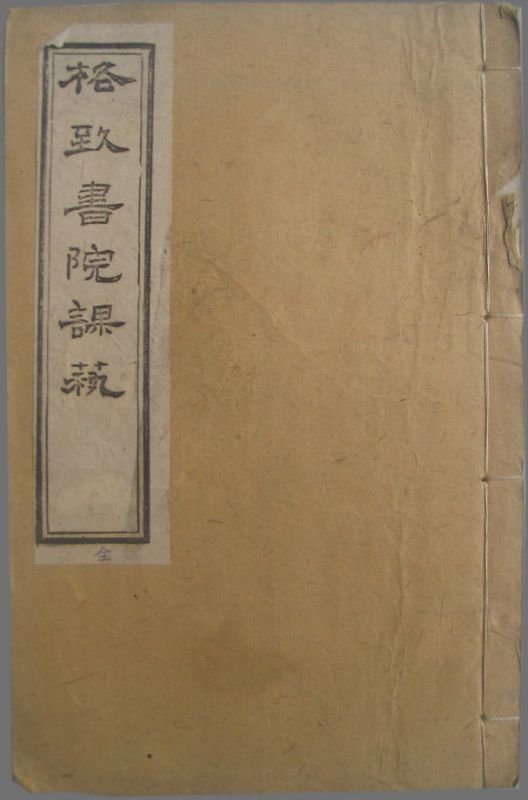 格致書院課蓺
全